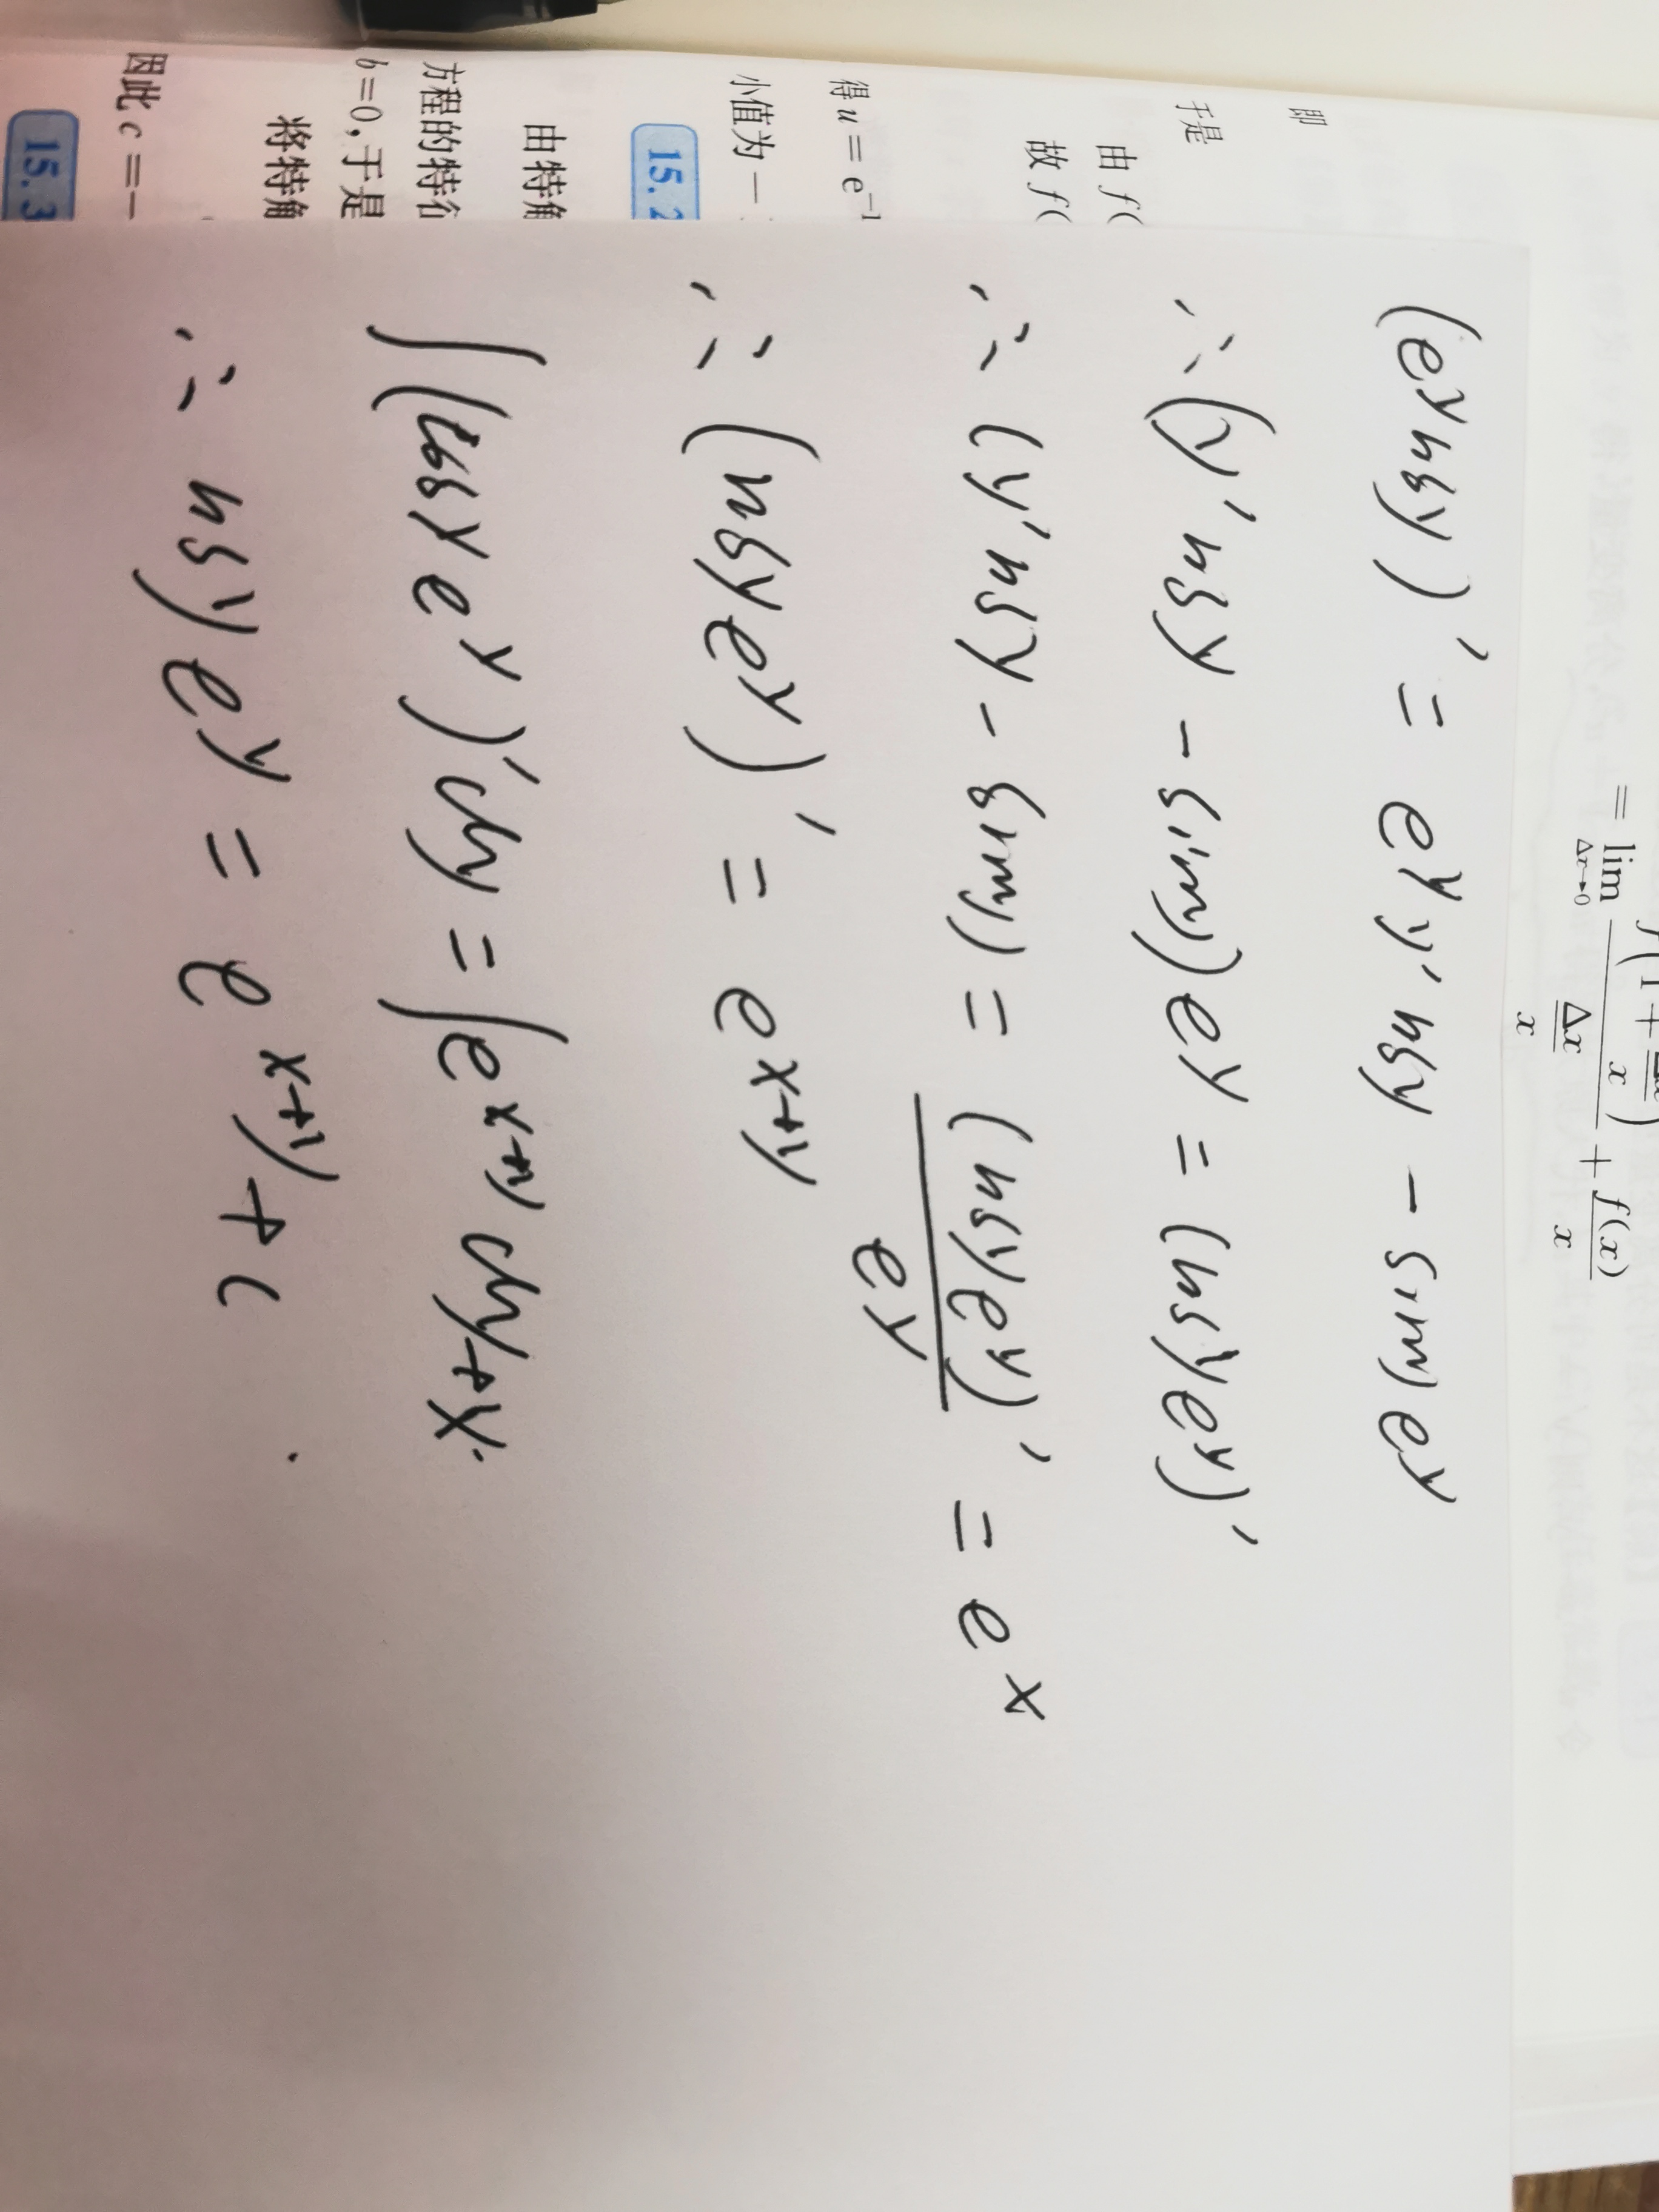 = lim Δx→0 f(1+Δx/x) / (Δx/x · x) + f(x)/x
即
于是
由 f(
故 f(
得 u = e⁻¹
小值为 —
15.2
由特解
方程的特征
b=0, 于是
将特解
因此 c = —
15.3
(e^y cosy)' = e^y y' cosy - siny e^y
∴ (y' cosy - siny) e^y = (cosy e^y)'
∴ (y' cosy - siny) = (cosy e^y)' / e^y = e^x
∴ (cosy e^y)' = e^{x+y}
∫(cosy e^y)' dy = ∫e^{x+y} dy+x
∴ cosy e^y = e^{x+y} + C